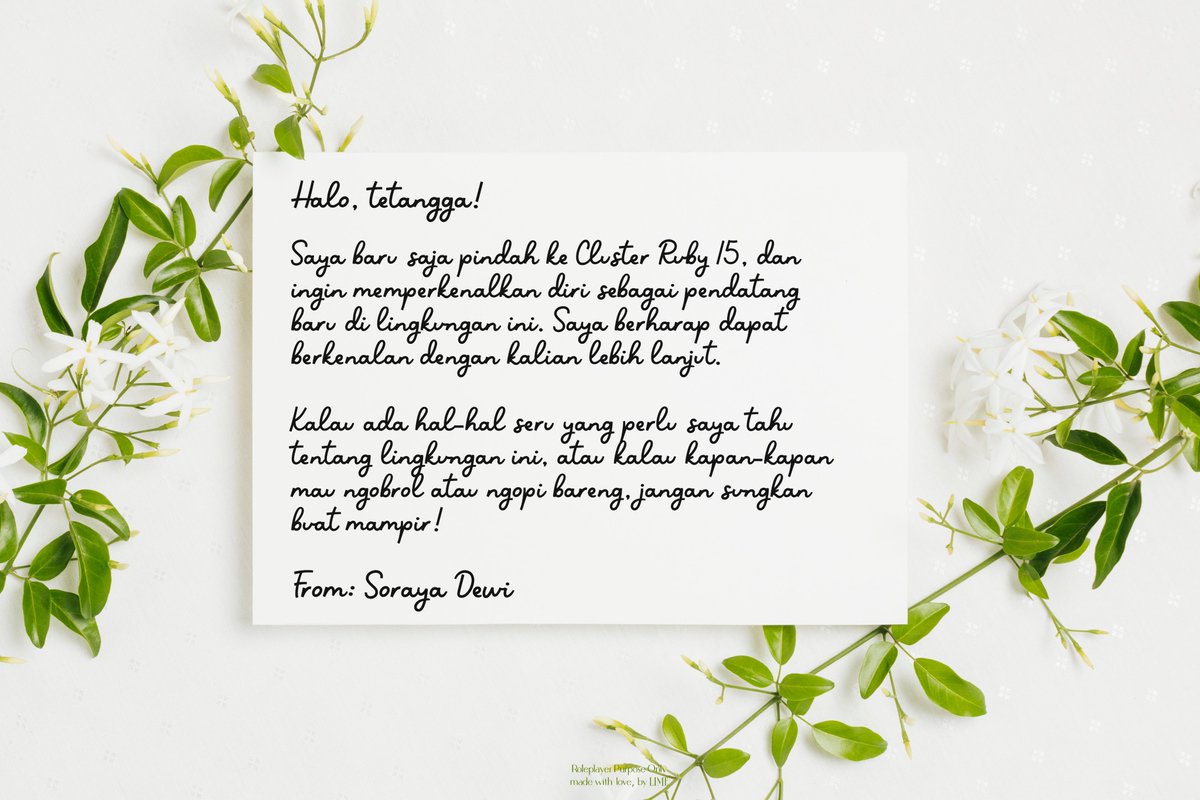 Halo, tetangga!
Saya baru saja pindah ke Cluster Ruby 15, dan
ingin memperkenalkan diri sebagai pendatang
baru di lingkungan ini. Saya berharap dapat
berkenalan dengan kalian lebih lanjut.
Kalau ada hal-hal seru yang perlu saya tahu
tentang lingkungan ini, atau kalau kapan-kapan
mau ngobrol atau ngopi bareng, jangan sungkan
buat mampir!
From: Soraya Dewi
Roleplayer Purpose Only
made with love, by LIME